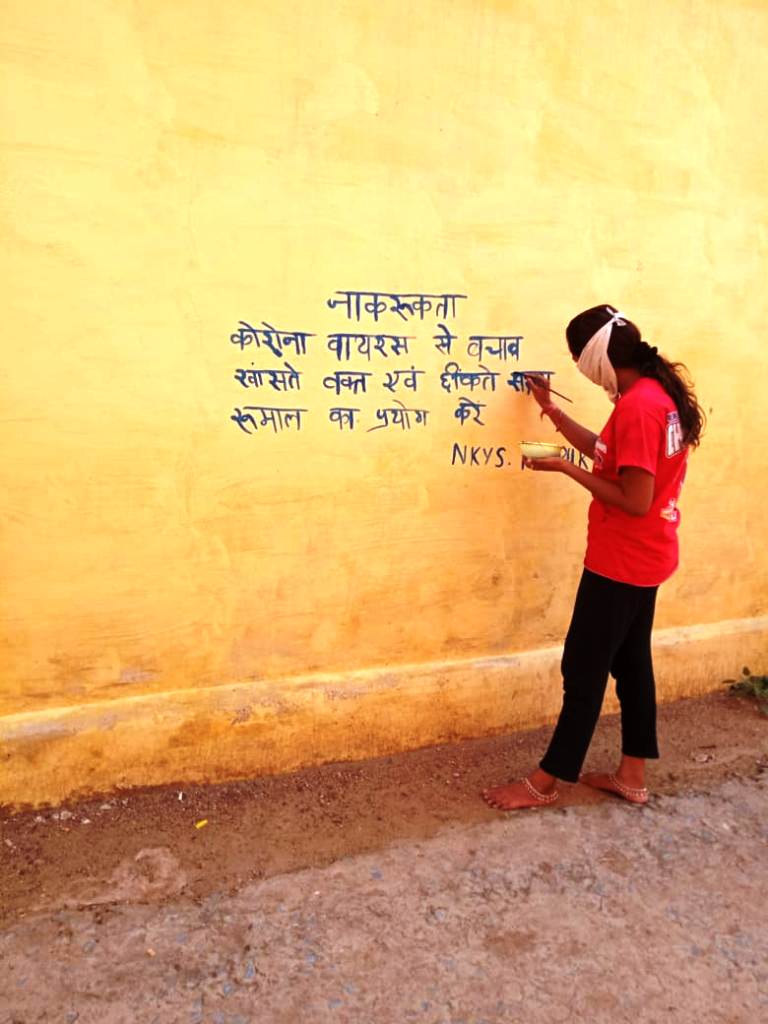 जाकरूकता
कोरोना वायरस से बचाव
खांसते वक्त एवं छींकते
रूमाल का प्रयोग करें
NKYS.